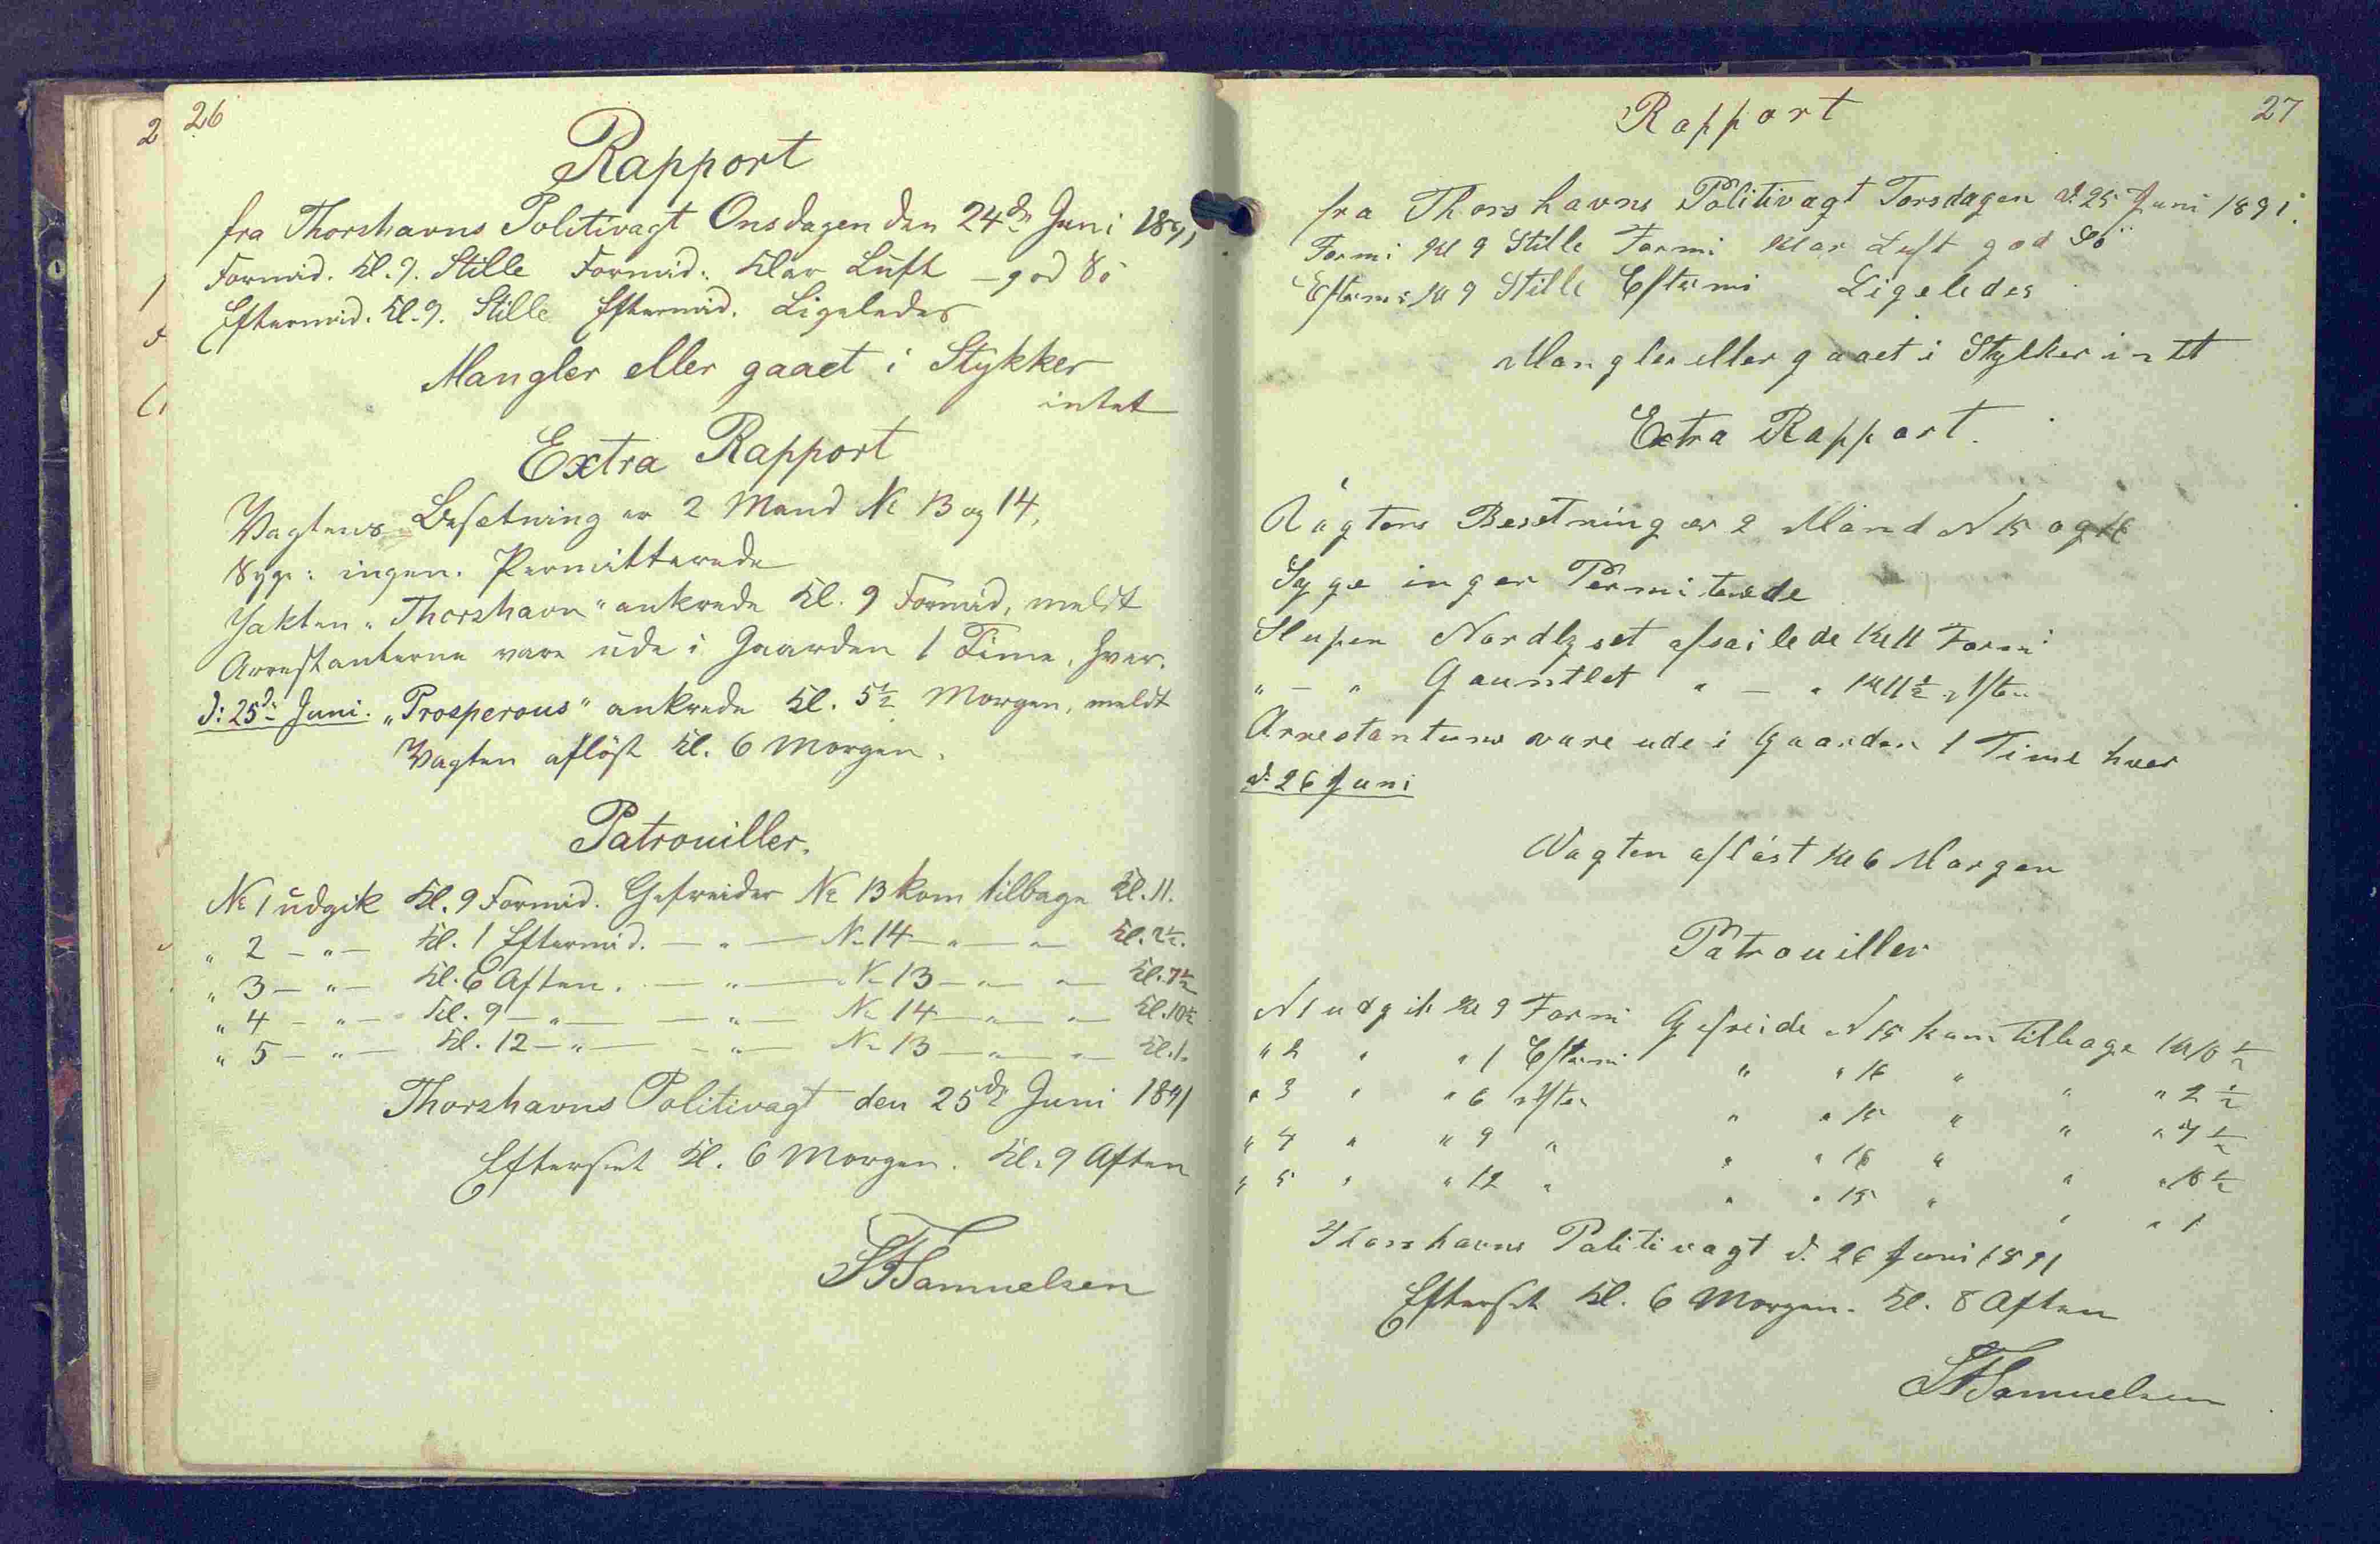 26
Rapport
fra Thorshavns Politivagt Onsdagen den 24de Juni 1891
Formid. Kl. 9. Stille Formid. Klar Luft – god Sö
Eftermid. Kl. 9. Stille Eftermid. Ligeledes
Mangler eller gaaet i Stykker
intet
Extra Rapport
Vagtens Besætning er 2 Mand No 13 og 14,
Syge: ingen. Permitterede
Jakten „Thorshavn" ankrede Kl. 9 Formid, meldt
Arrestanterne vare ude i Gaarden 1 Time, hver.
d: 25de Juni. „Prosperous" ankrede Kl. 5½ Morgen, meldt
Vagten aflöst Kl. 6 Morgen.
Patrouiller.
No 1 udgik Kl. 9 Formid. Gefreider No 13 kom tilbage Kl. 11.
„ 2 – „ – Kl. 1 Eftermid. – „ – No 14 – „ – „ – Kl. 2½.
„ 3 – „ – Kl. 6 Aften. – „ – No 13 – „ – „ – Kl. 7½
„ 4 – „ – Kl. 9 – „ – – „ – No 14 – „ – „ – Kl. 10½
„ 5 – „ – Kl. 12 – „ – – „ – No 13 – „ – „ – Kl. 1.
Thorshavns Politivagt den 25de Juni 1891
Efterset Kl. 6 Morgen. Kl. 9 Aften
Samuelsen
27
Rapport
fra Thorshavns Politivagt Torsdagen d. 25 Juni 1891.
Formi Kl 9 Stille Formi Klar Luft god Sö
Eftermi Kl 9 Stille Eftermi Ligeledes
Mangler eller gaaet i Stykker intet
Extra Rapport.
Vagtens Besetning er 2 Mand N 15 og 16
Syge ingen Permiterede
Slupen Nordlyset afsailede Kl 11 Formi
„ – „ Gauntlet „ – „ Kl 11½ Aften
Arrestanterne vare ude i Gaarden 1 Time hver
d. 26 Juni
Vagten aflöst Kl 6 Morgen
Patrouiller
N 1 udgik Kl 9 Formi Gefreide N 15 kom tilbage Kl 10½
„ 2 „ „ 1 Eftermi „ „ 16 „ „ „ 2½
„ 3 „ „ 6 Aften „ „ 15 „ „ „ 7½
„ 4 „ „ 9 „ „ „ 16 „ „ „ 10½
„ 5 „ „ 12 „ „ „ 15 „ „ „ 1
Thorshavns Politivagt d. 26 Juni 1891
Efterset Kl. 6 Morgen. Kl. 8 Aften
Samuelsen